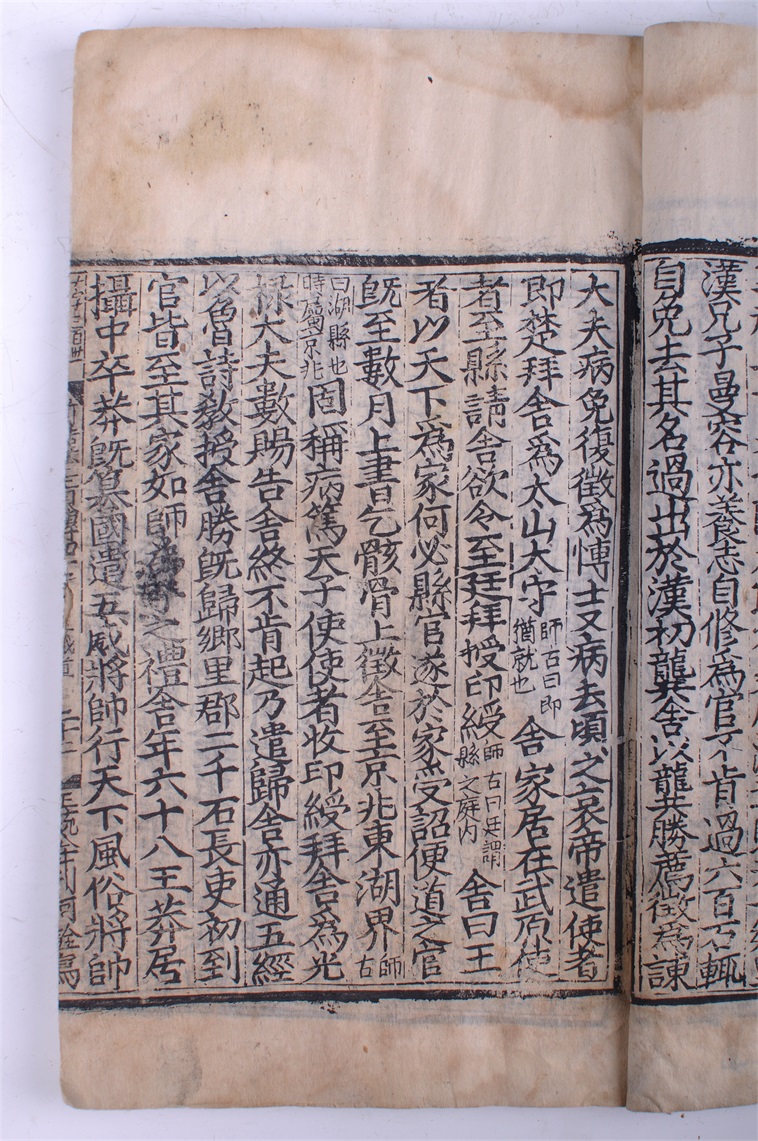 漢兄子曼容亦養志自修爲官不肯過六百石輒
自免去其名過出於漢初龔舍以龔勝薦徵爲諫
大夫病免復徵爲愽士又病去頃之哀帝遣使者
即楚拜舍爲太山太守師古曰即猶就也舍家居在武原使
者至縣請舍欲令至廷拜授印綬師古曰廷謂縣之庭内舍曰王
者以天下爲家何必縣官遂於家受詔便道之官
旣至數月上書乞骸骨上徵舍至京兆東湖界師古
曰湖縣也時屬京兆固稱病篤天子使使者收印綬拜舍爲光
祿大夫數賜告舍終不肯起乃遣歸舍亦通五經
以魯詩敎授舍勝旣歸鄉里郡二千石長吏初到
官皆至其家如師弟子之禮舍年六十八王莽居
攝中卒莽旣篡國遣五威將帥行天下風俗將帥